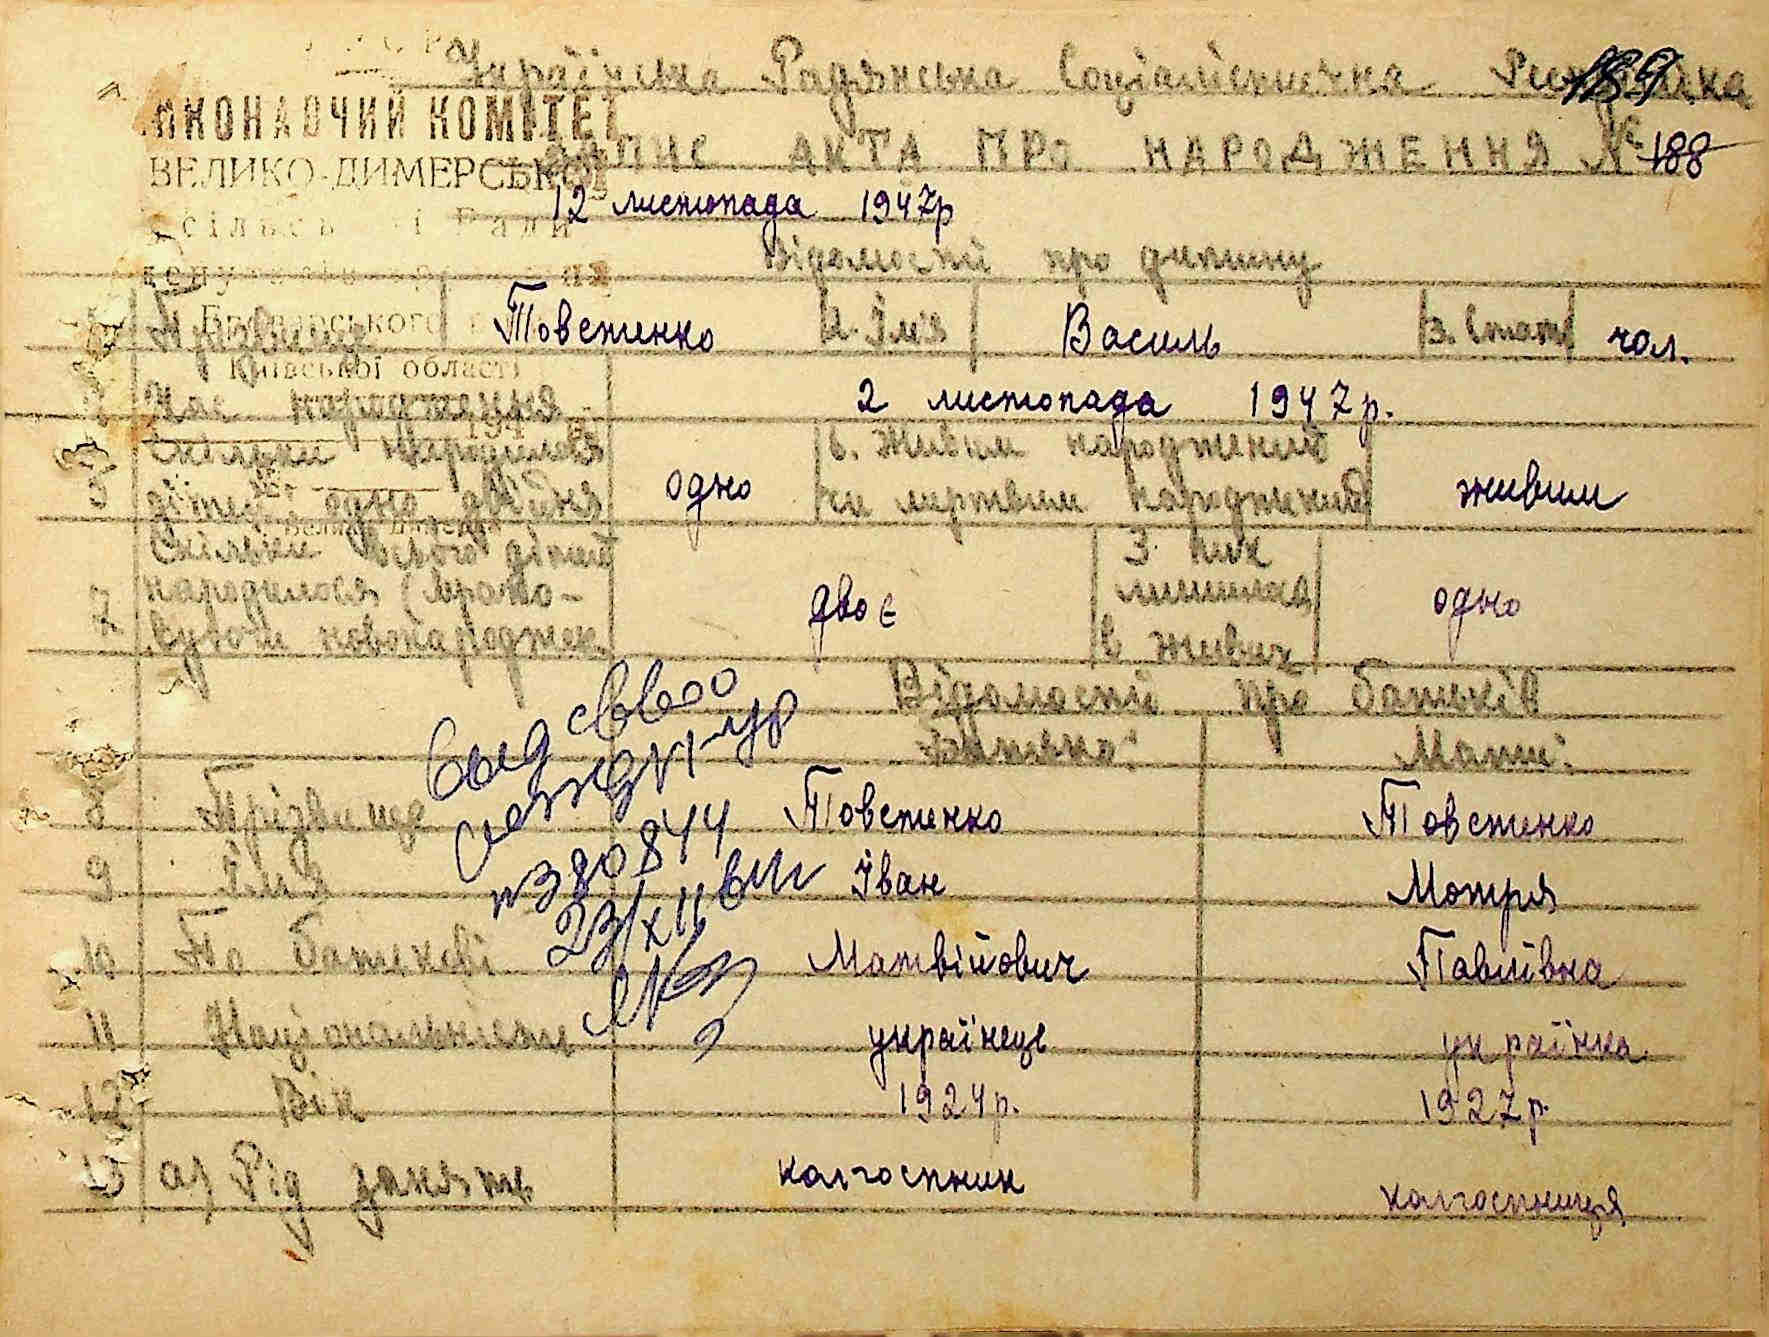 Українська Радянська Соціалістична Республіка
189
ВИКОНАВЧИЙ КОМІТЕТ
ЗАПИС АКТА ПРО НАРОДЖЕННЯ № 188
ВЕЛИКО-ДИМЕРСЬКОЇ
12 листопада 1947р
сільської Ради
Відомостй про дитину
Броварського
Київської області
194
1 Прізвище Товстенко 2. Імя Василь 3. Стать чол.
Час народження 2 листопада 1947р.
5 Скільки народилося дітей одно двійня одно 6. Живим народжений чи мертвим народжений живим
7 Скільки всього дітей народилося (врахо-вуючи новонароджен. двоє З них лишилась в живих одно
Відомостй про батьків
Батько: Мати:
8 Прізвище Товстенко Товстенко
9 Імя Іван Мотря
10 По батькові Матвійович Павлівна
11 Національність українець українка
12 Вік 1924р. 1927р.
13 а) Рід занять колгоспник колгоспниця
380844
23/XII